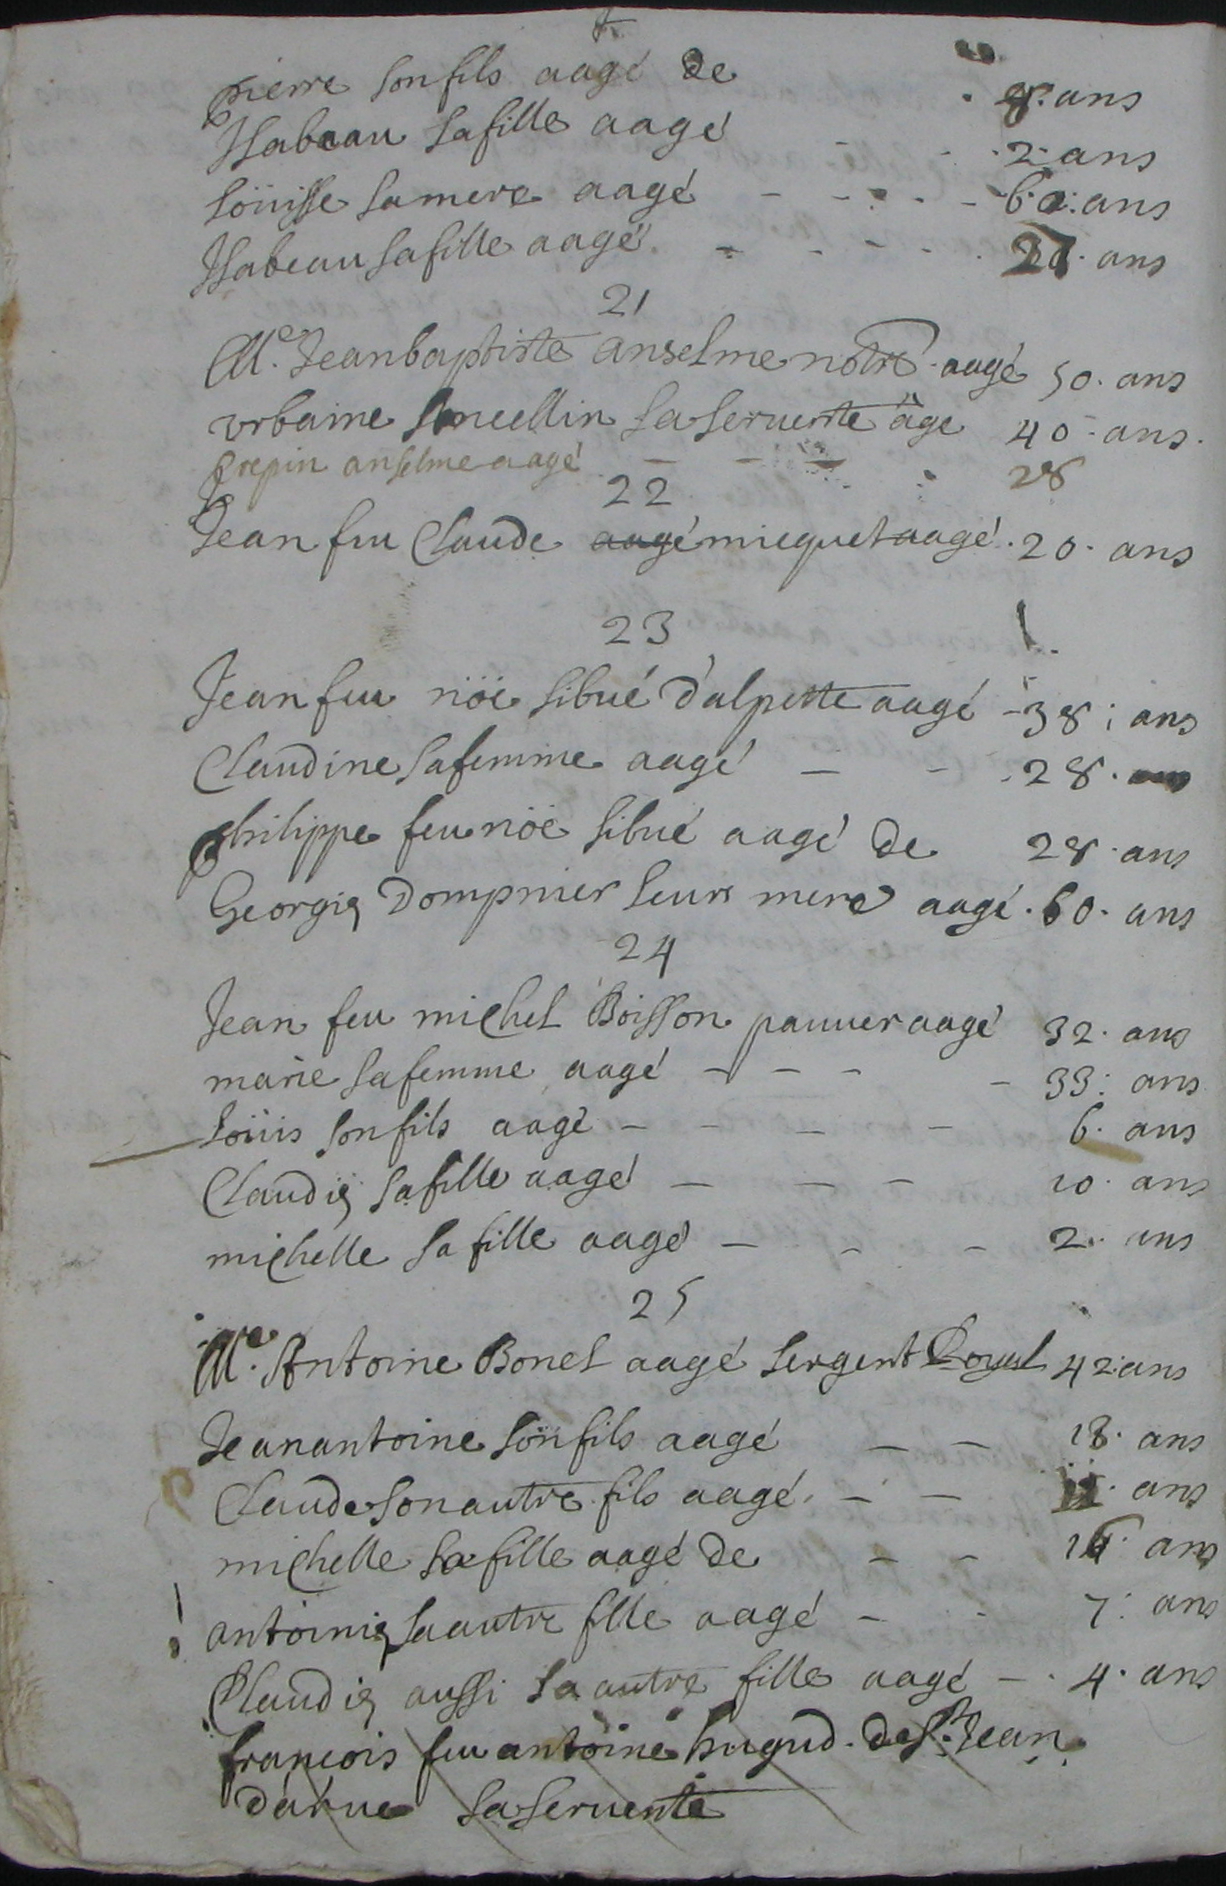 pierre son fils aagé de 8. ans
Jsabeau sa fille aagé 2. ans
Loüisse sa mere aagé 60. ans
Jsabeau sa fille aagé ans
21
Me. Jean baptiste anselme notre. aagé 50. ans
vrbaine sa seruente âge 40. ans.
Crepin anselme aagé 28
22
Jean feu Claude aagé micquet aagé. 20. ans
23
Jean feu nöé sibué d'alpette aagé 38. ans
Claudine sa femme aagé 28. ans
philippe feu nöé sibué aagé de 28. ans
Georgię Dompnier leurs mere aagé. 60. ans
24
Jean feu michel Boisson pauuer aagé 32. ans
marie sa femme aagé 33. ans
Loüis son fils aagé 6. ans
Claudię sa fille aagé 10. ans
michelle sa fille aagé 2. ans
25
Me. Antoine Bonel aagé sergent Royal 42. ans
Jean antoine son fils aagé 18. ans
Claude son autre fils aagé. 11. ans
michelle sa fille aagé de 16. ans
antoinię sa autre fille aagé 7. ans
Claudię aussi sa autre fille aagé 4. ans
francois feu antoine hugud. de St. Jean
d'arue sa seruente